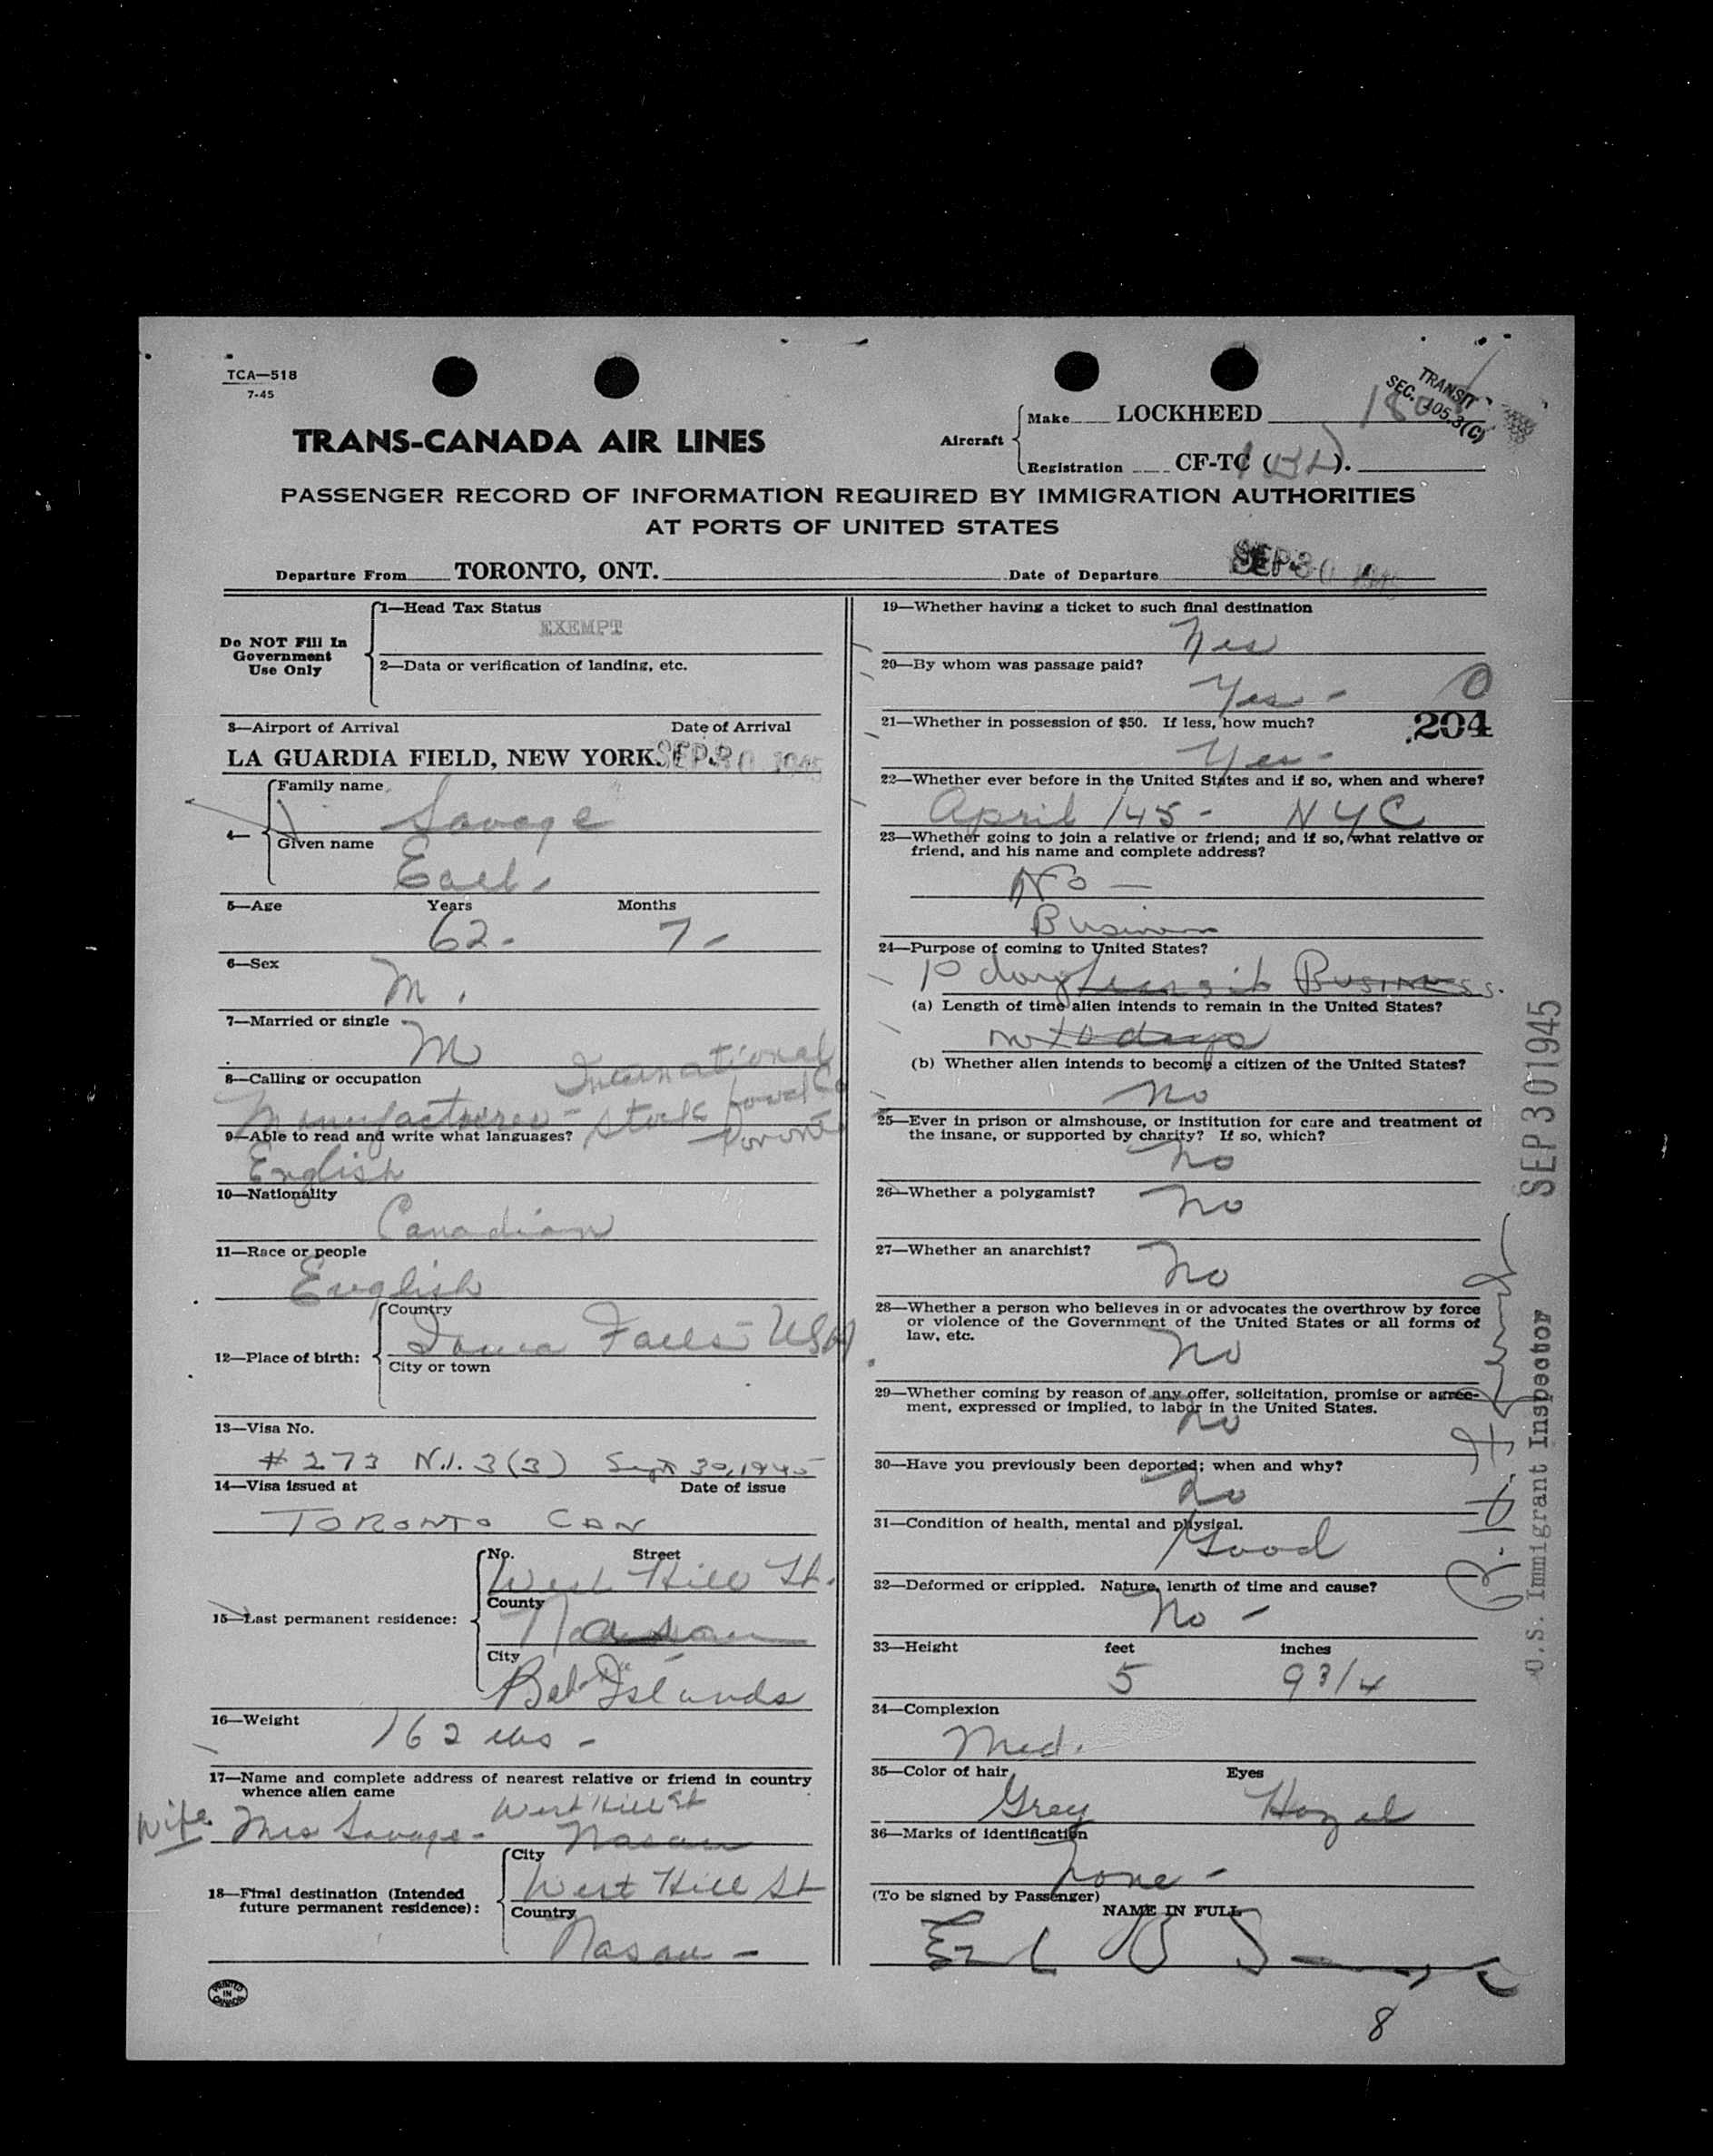 TCA—518
7-45
TRANSIT
SEC. 105.3(C)
Aircraft
Make LOCKHEED
TRANS-CANADA AIR LINES
Registration CF-TC ( ).
PASSENGER RECORD OF INFORMATION REQUIRED BY IMMIGRATION AUTHORITIES
AT PORTS OF UNITED STATES
Departure From TORONTO, ONT. Date of Departure SEP 30 1945
Do NOT Fill In
Government
Use Only
1—Head Tax Status
EXEMPT
2—Data or verification of landing, etc.
3—Airport of Arrival Date of Arrival
LA GUARDIA FIELD, NEW YORK. SEP 30 1945
4—
Family name
Savage
Given name
Earl
5—Age Years Months
62 - 7 -
6—Sex
M.
7—Married or single
M
8—Calling or occupation
International
Manufacturer - Stock Food Co
Toronto
9—Able to read and write what languages?
English
10—Nationality
Canadian
11—Race or people
English
12—Place of birth:
Country
Iowa Falls - USA
City or town
13—Visa No.
# 273 N.I. 3(3) Sept 30, 1945
14—Visa issued at Date of issue
TORONTO CAN
15—Last permanent residence:
No. Street
West Hill St.
County
Nassau
City
Bah. Islands
16—Weight
162 lbs -
17—Name and complete address of nearest relative or friend in country
whence alien came
West Hill St
Wife Mrs Savage - Nasau
18—Final destination (Intended
future permanent residence):
City
West Hill St
Country
Nasau -
PRINTED
IN
CANADA
19—Whether having a ticket to such final destination
Yes
20—By whom was passage paid?
Yes -
0
21—Whether in possession of $50. If less, how much?
204
Yes -
22—Whether ever before in the United States and if so, when and where?
April /45 - NYC
23—Whether going to join a relative or friend; and if so, what relative or
friend, and his name and complete address?
No —
Business
24—Purpose of coming to United States?
10 days transit BUSINESS.
(a) Length of time alien intends to remain in the United States?
10 days
(b) Whether alien intends to become a citizen of the United States?
No
25—Ever in prison or almshouse, or institution for care and treatment of
the insane, or supported by charity? If so, which?
No
26—Whether a polygamist?
No
27—Whether an anarchist?
No
28—Whether a person who believes in or advocates the overthrow by force
or violence of the Government of the United States or all forms of
law, etc.
No
29—Whether coming by reason of any offer, solicitation, promise or agree-
ment, expressed or implied, to labor in the United States.
No
30—Have you previously been deported; when and why?
No
31—Condition of health, mental and physical.
Good
32—Deformed or crippled. Nature, length of time and cause?
No -
33—Height feet inches
5 9 3/4
34—Complexion
Med.
35—Color of hair Eyes
Grey Hazel
36—Marks of identification
None -
(To be signed by Passenger)
NAME IN FULL
Earl B Savage
8
SEP 30 1945
U.S. Immigrant Inspector